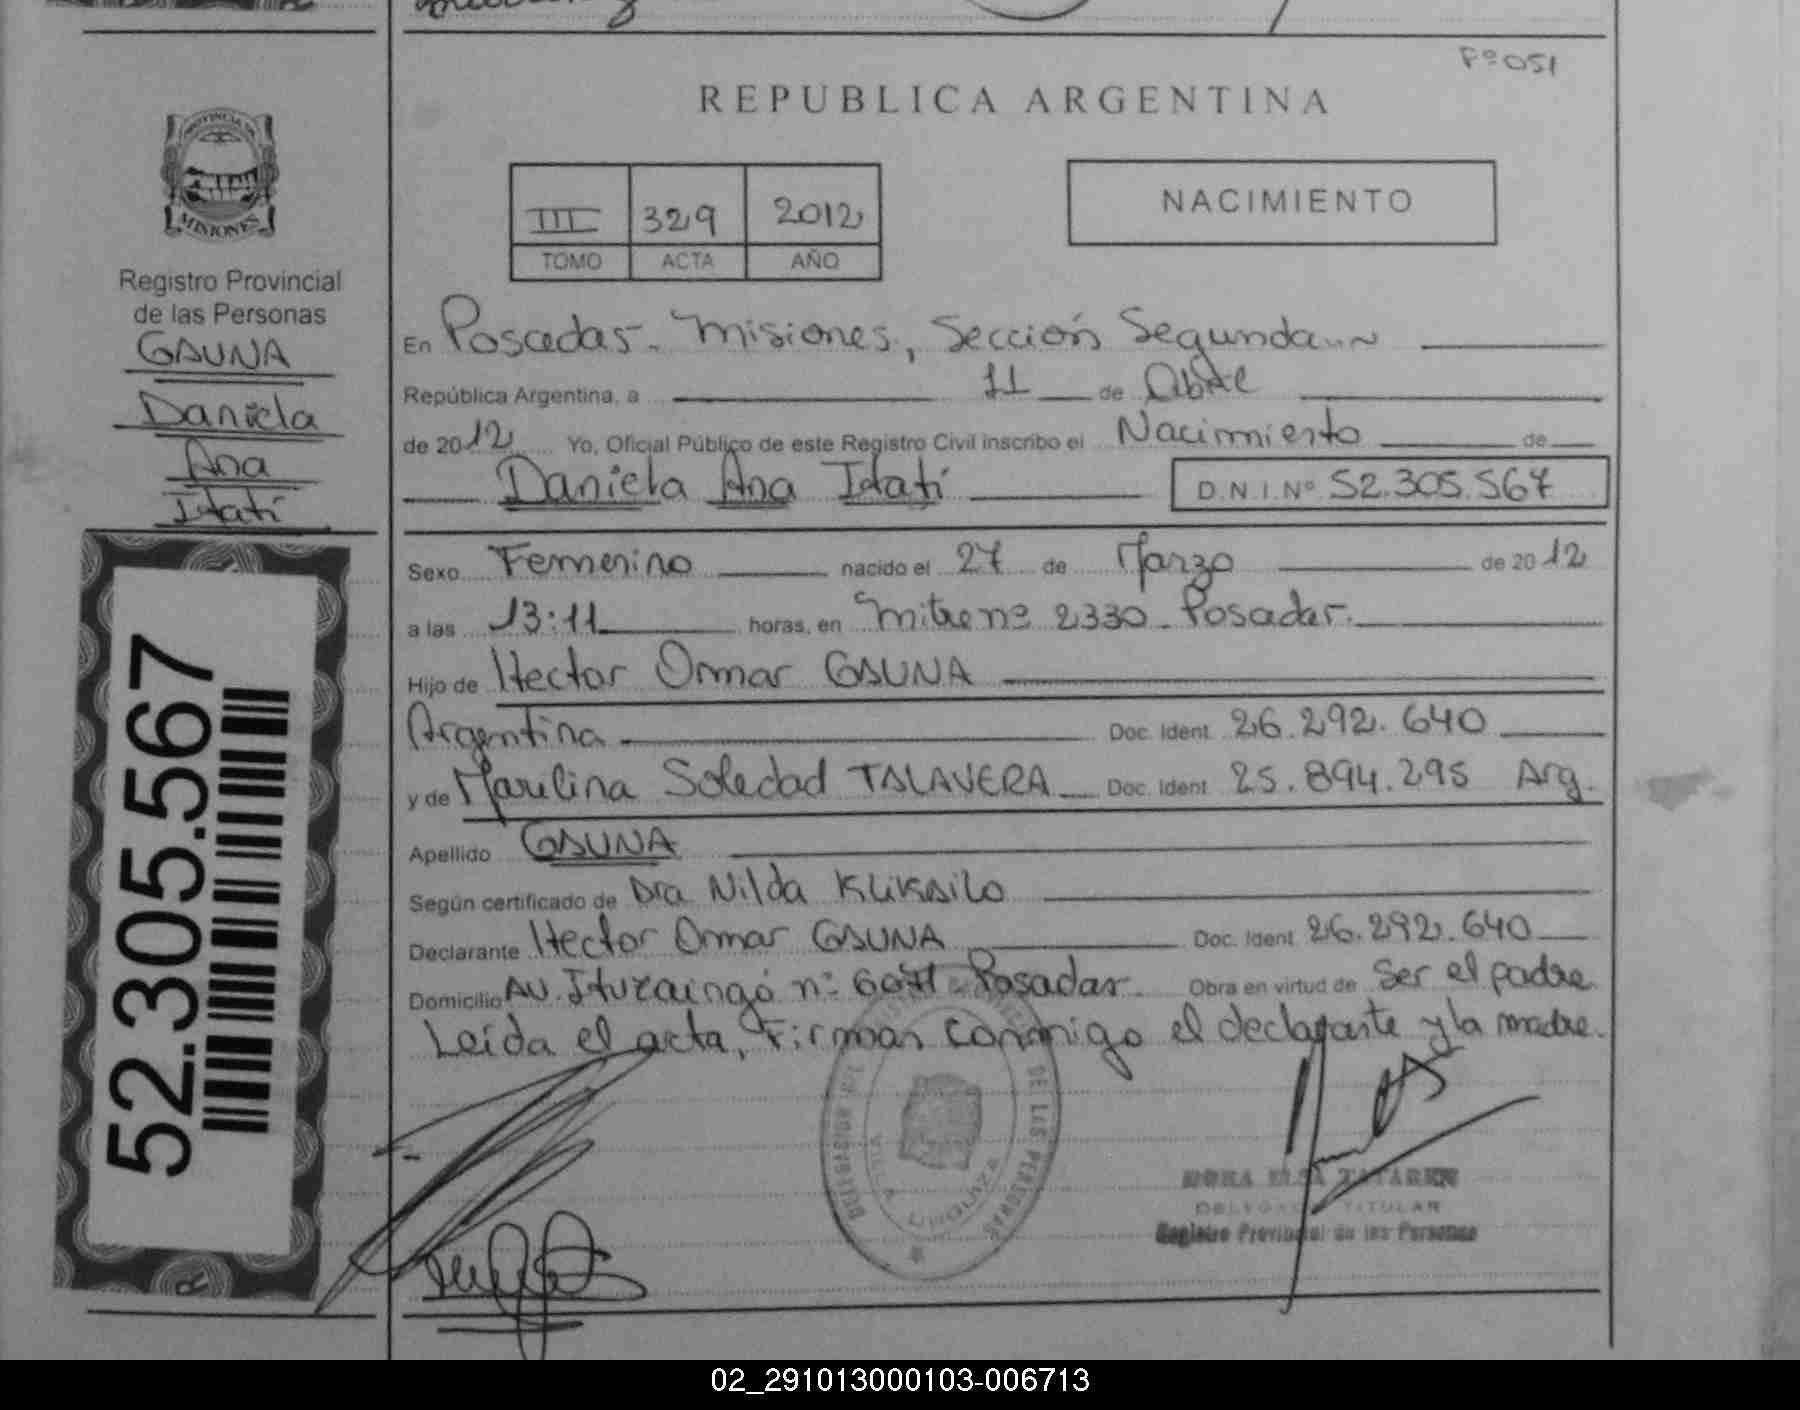 Fº051
REPUBLICA ARGENTINA
PROVINCIA DE
MISIONES
III 329 2012
TOMO ACTA AÑO
NACIMIENTO
Registro Provincial
de las Personas
GAUNA
Daniela
Ana
Itatí
En Posadas - Misiones, Sección Segunda
República Argentina, a 11 de Abril
de 2012 Yo, Oficial Público de este Registro Civil inscribo el Nacimiento de
Daniela Ana Itatí D.N.I.Nº 52.305.567
Sexo Femenino nacido el 27 de Marzo de 2012
a las 13:11 horas, en Mitre nº 2330 - Posadas.
Hijo de Hector Omar GAUNA
Argentina Doc. Ident. 26.292.640
y de Marilina Soledad TALAVERA Doc. Ident. 25.894.295 Arg.
Apellido GAUNA
Según certificado de Dra Nilda
Declarante Hector Omar GAUNA Doc. Ident. 26.292.640
Domicilio Av. Ituzaingó nº Posadas. Obra en virtud de Ser el padre
Leída el acta, Firman conmigo el declarante y la madre.
52.305.567
R
DE LAS PERSONAS
VILLA URQUIZA
ELSA
DELEGADA TITULAR
Registro Provincial de las Personas
02_291013000103-006713